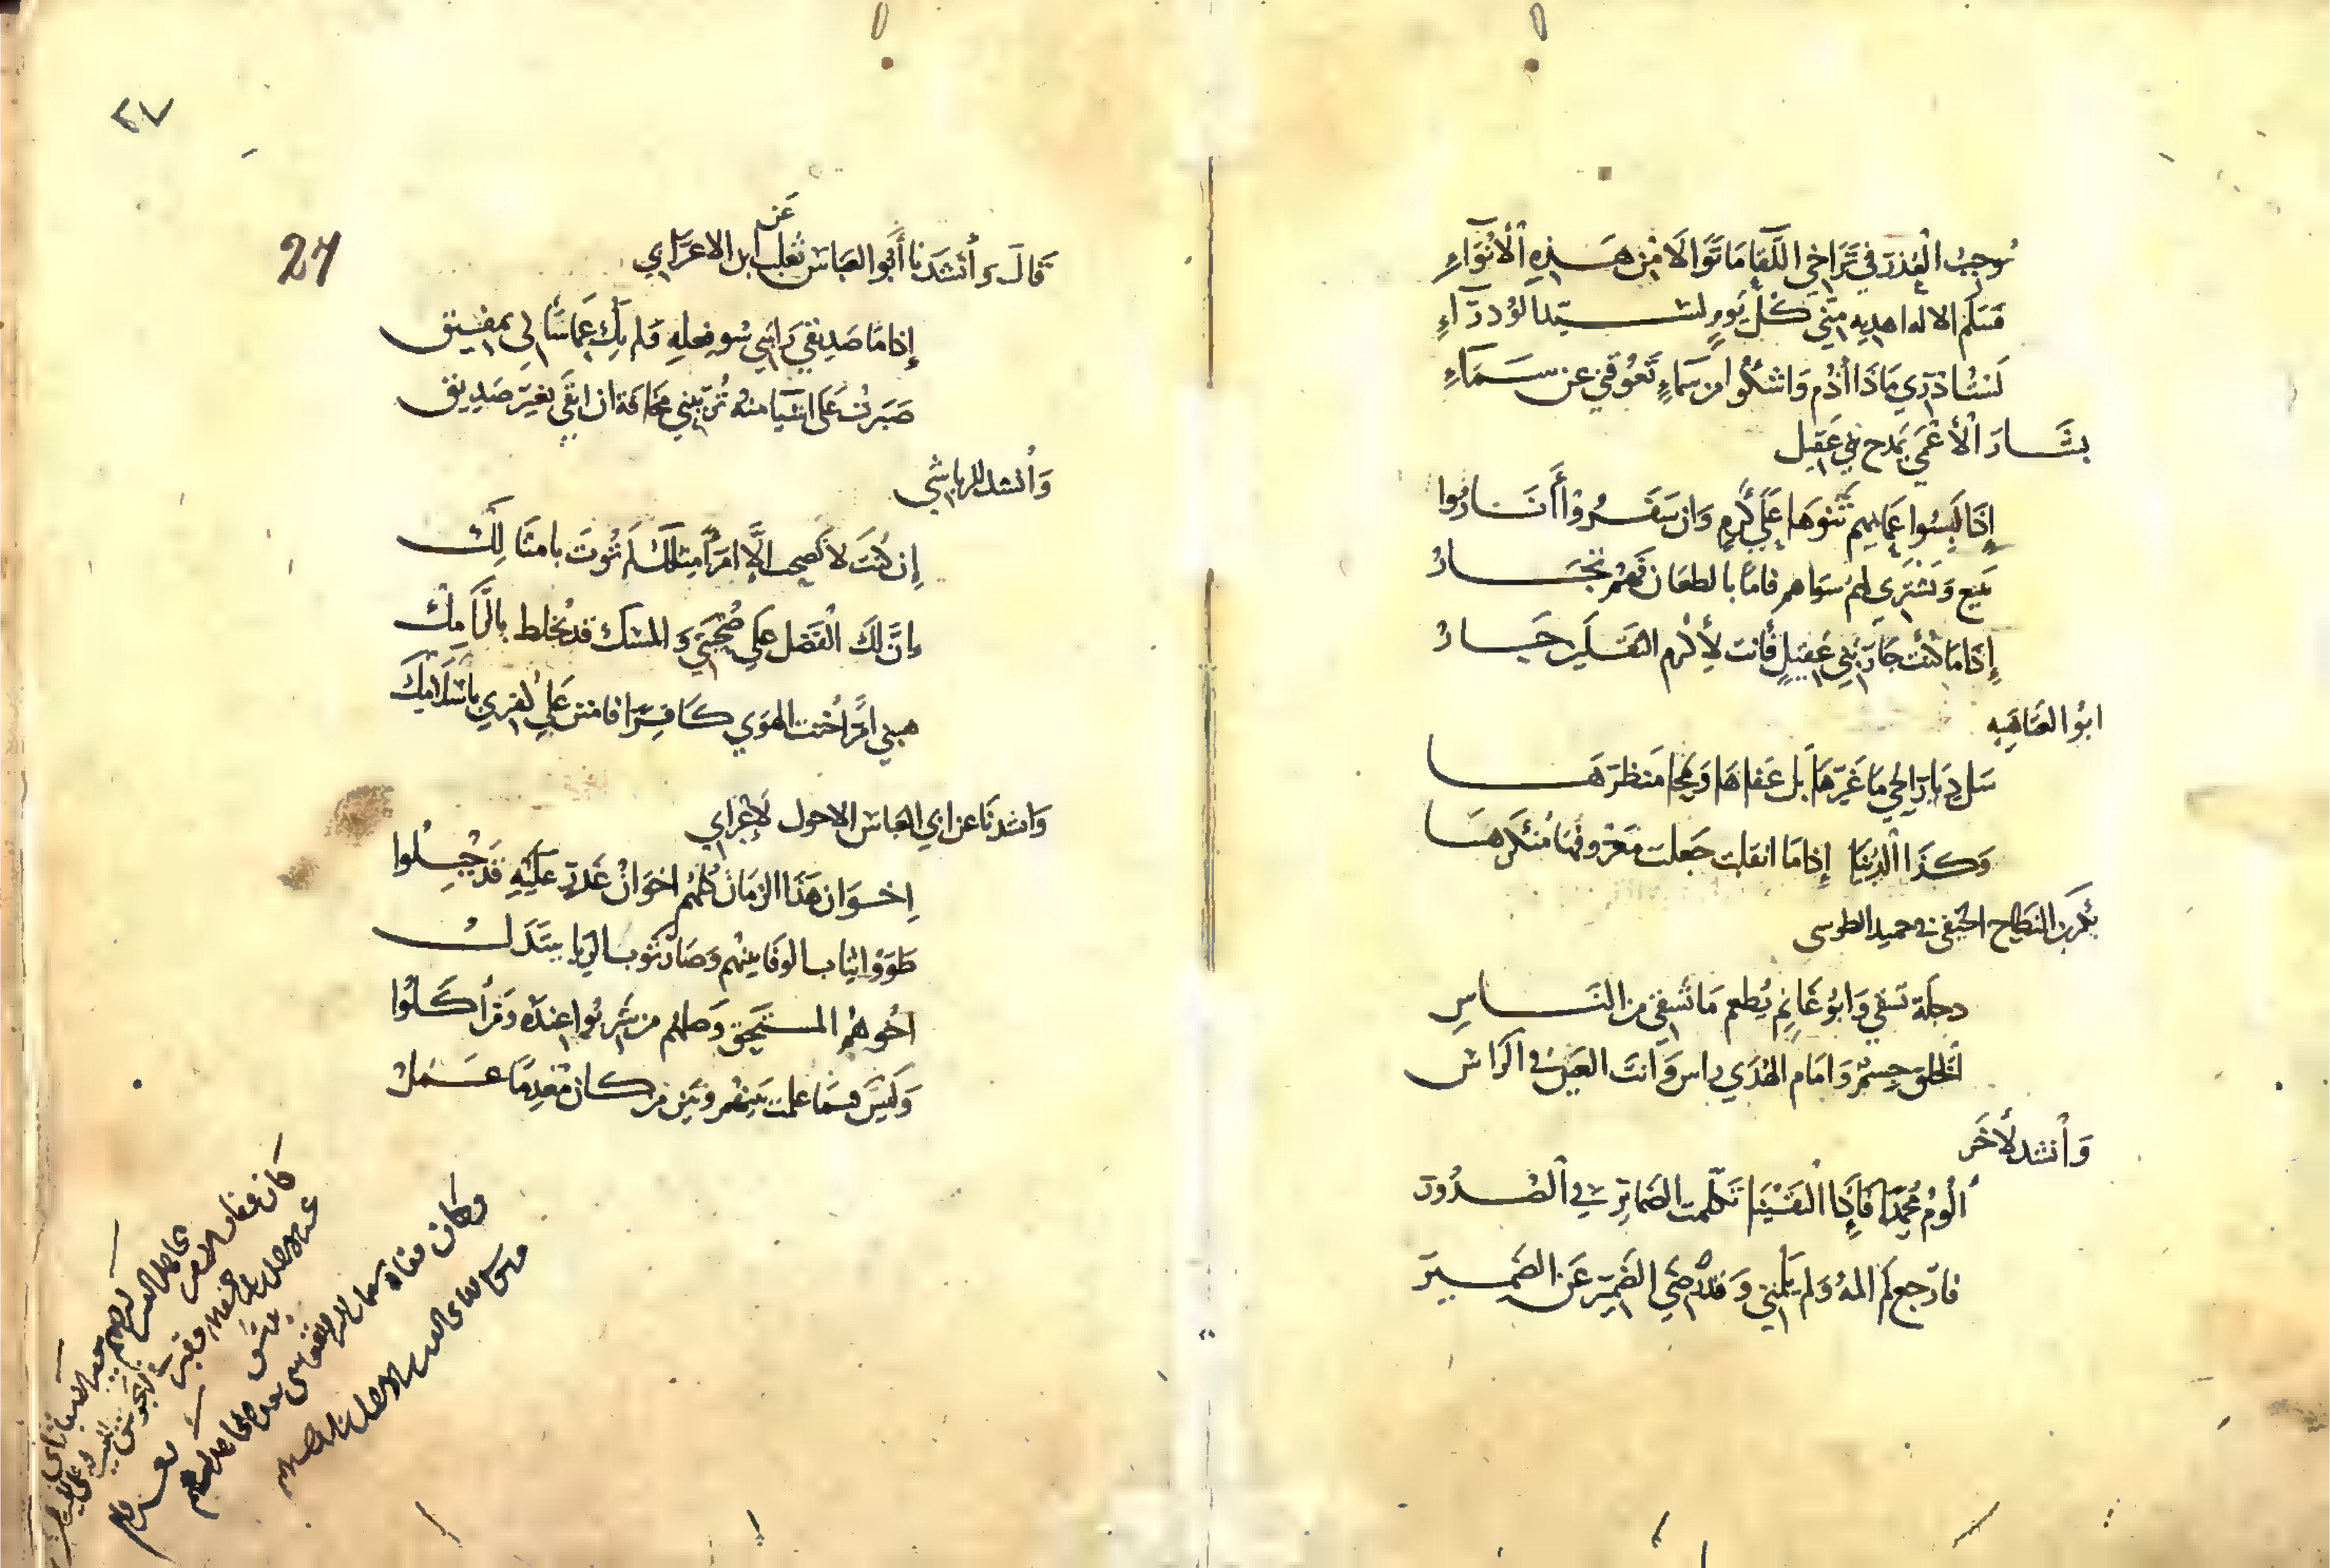 تُوجِبُ الْعُذْرَ فِي تَرَاخِي اللِّقَا مَا تَوَالَا مِنْ هَـذِهِ الْأَنْوَاءِ
فَسَلَم الاله اهديه مِنّي كُلَّ يَومٍ لسَـيّد الوُزرَآءِ
لَسْتُ اذرِي مَاذَا أذُم وَاشْكُوا مِن سَمَاءٍ تَعُوقُني عن سَـمَاءِ
بشَّـار الْأَعْمَي يَمدح بني عَقِيل
إِذَا لَبِسُوا عَمَايِمهم ثَنَوهَا عَلَي كَرمٍ وَان سَفَـرُوْا أَنَـارُوا
يَبيع وَيَشْتَرِي لهُم سَوَاهم فامّا بالطعَان فَهُمْ تجَـارُ
إِذَا مَا كُنْتَ جَارَ بَني عَقِيْلٍ فَأَنت لِأَكرم الثقَـلَين جَـارُ
ابوُ العَتَاهِيِه
سَل دِيَارَ الحَيّ مَا غَيّرهَا بَل عَفاهَا وَمحَا مَنظرَهَـا
وَكَـذَا الدُّنْيَا إِذا مَا انقلبت جَعلت مَعْرُوفهَا مُنْكَرهَـا
بَكر بن النطّاح الحَنفي في حميد الطوسي
دجلَة تسَقي وَابوُ غَانِمٍ يُطعم مَا تَسْقي مِنَ النَّـاسِ
الخَلق جِسْمٌ وَامَام الهُدَي راس وَانتَ العَينُ في الرَاس
وَأنشد لأخَر
ألُومُ مُحَمّدًا فَإِذَا الْتَقَيْنَا تَكلّمت الضمائر في الصُـدُور
فارجع لم المهُ وَلم يَلُمْني وَقد رَضِيَ الضَمِيْر عَن الضَمِـير
٢٧
27
قَالَ وَأنْشَدَنَا أبُو العبَاس ثعلب عَن ابن الاعرَابي
إِذا مَا صَدِيقي رَابَني سُوء فِعلهِ وَلم يكُ عَمّا سَأني بمفِيـق
صَبَرتُ عَلي اشيَا منهُ تُرِيْبني مخَافة ان ابقَي بغَير صَدِيـق
وَأُنشد للرياشي
إِن كُنتَ لا تَصحب إلَّا امرًا مِثلكَ لَم تُوتَ بامثَالِـك
إنَّ لكَ الْفَضْل عَلي صُحْبَتي وَالمسْك قد يُخلط بالرَّامِكْ
هبني امرًا خُنت الهَوَي كَـافِرًا فامنن عَلي كُفري بأسْلَامِكَ
وَانشدنَا عن ابي العَباس الاحول لأعْرَابي
إِخـوَان هَذَا الزمَان كلهُم اخوَانُ غَدرٍ عَلَيْهِ قَدْ جُبِـلُوا
طَوَوْا ثيَاب الوَفا بينهُم وَصَار ثَوب الرّيا يبتَذَلُ
اخُوهُمُ المسْتَحِق وَصلهُم مَن شَرِبُوا عِندَه وَمَن أكَـلُوا
وَلَيْسَ فيمَا علمت بَينهُم وَبَين مَن كـان مُعْدِمًا عَـمَلُ